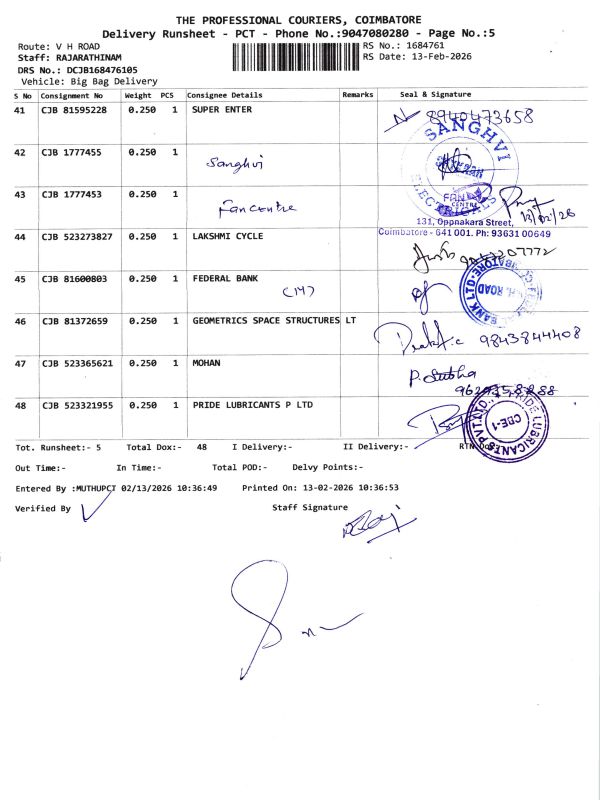 THE PROFESSIONAL COURIERS, COIMBATORE
Delivery Runsheet - PCT - Phone No.:9047080280 - Page No.:5
Route: V H ROAD
RS No.: 1684761
Staff: RAJARATHINAM
RS Date: 13-Feb-2026
DRS No.: DCJB168476105
Vehicle: Big Bag Delivery
S No Consignment No Weight PCS Consignee Details Remarks Seal & Signature
41 CJB 81595228 0.250 1 SUPER ENTER
8940473658
SANGHVI
ELECTRICALS
42 CJB 1777455 0.250 1
Sanghvi
43 CJB 1777453 0.250 1
Fancentre
FAN CENTRE
13/02/26
131, Oppnakara Street,
Coimbatore - 641 001. Ph: 93631 00649
44 CJB 523273827 0.250 1 LAKSHMI CYCLE
45 CJB 81600803 0.250 1 FEDERAL BANK
46 CJB 81372659 0.250 1 GEOMETRICS SPACE STRUCTURES LT
9843844408
47 CJB 523365621 0.250 1 MOHAN
P. Subha
48 CJB 523321955 0.250 1 PRIDE LUBRICANTS P LTD
PRIDE LUBRICANTS PVT.LTD.
CBE-1
Tot. Runsheet:- 5 Total Dox:- 48 I Delivery:- II Delivery:-
Out Time:- In Time:- Total POD:- Delvy Points:-
Entered By :MUTHUPCT 02/13/2026 10:36:49 Printed On: 13-02-2026 10:36:53
Verified By Staff Signature